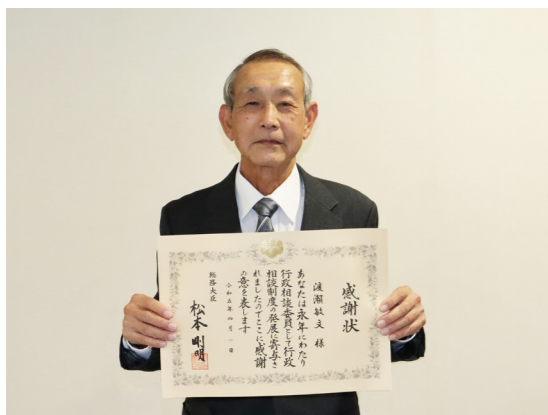 感謝状
渡瀬敏文 様
あなたは永年にわたり
行政相談委員として行政
相談制度の発展に寄与さ
れましたのでここに感謝
の意を表します
令和五年四月一日
総務大臣
松本剛明